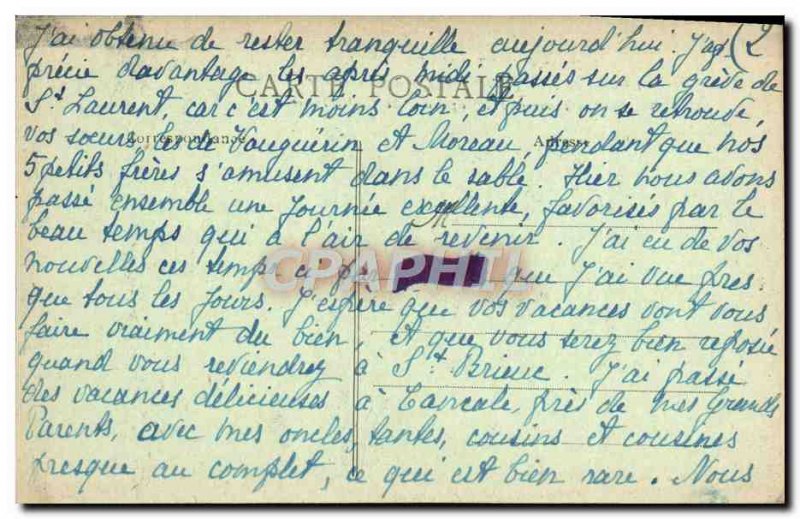 J'ai obtenu de rester tranquille aujourd'hui. J'ap (2
précie davantage les après midi passés sur la grève de
CARTE POSTALE
St Laurent, car c'est moins loin, et puis on se retrouve,
Correspondance
Adresse
vos sœurs, de Vauguérin et Moreau, pendant que nos
5 petits frères s'amusent dans le sable. Hier nous avons
passé ensemble une journée excellente, favorisés par le
M
beau temps qui a l'air de revenir. J'ai eu de vos
nouvelles ces temps ci par que j'ai vue pres
CAPHIL
que tous les jours. J'espère que vos vacances vont vous
faire vraiment du bien, et que vous serez bien reposée
quand vous reviendrez à St Brieuc. J'ai passé
des vacances délicieuses à Cancale, près de mes Grands
Parents, avec mes oncles, tantes, cousins et cousines
presque au complet, ce qui est bien rare. Nous